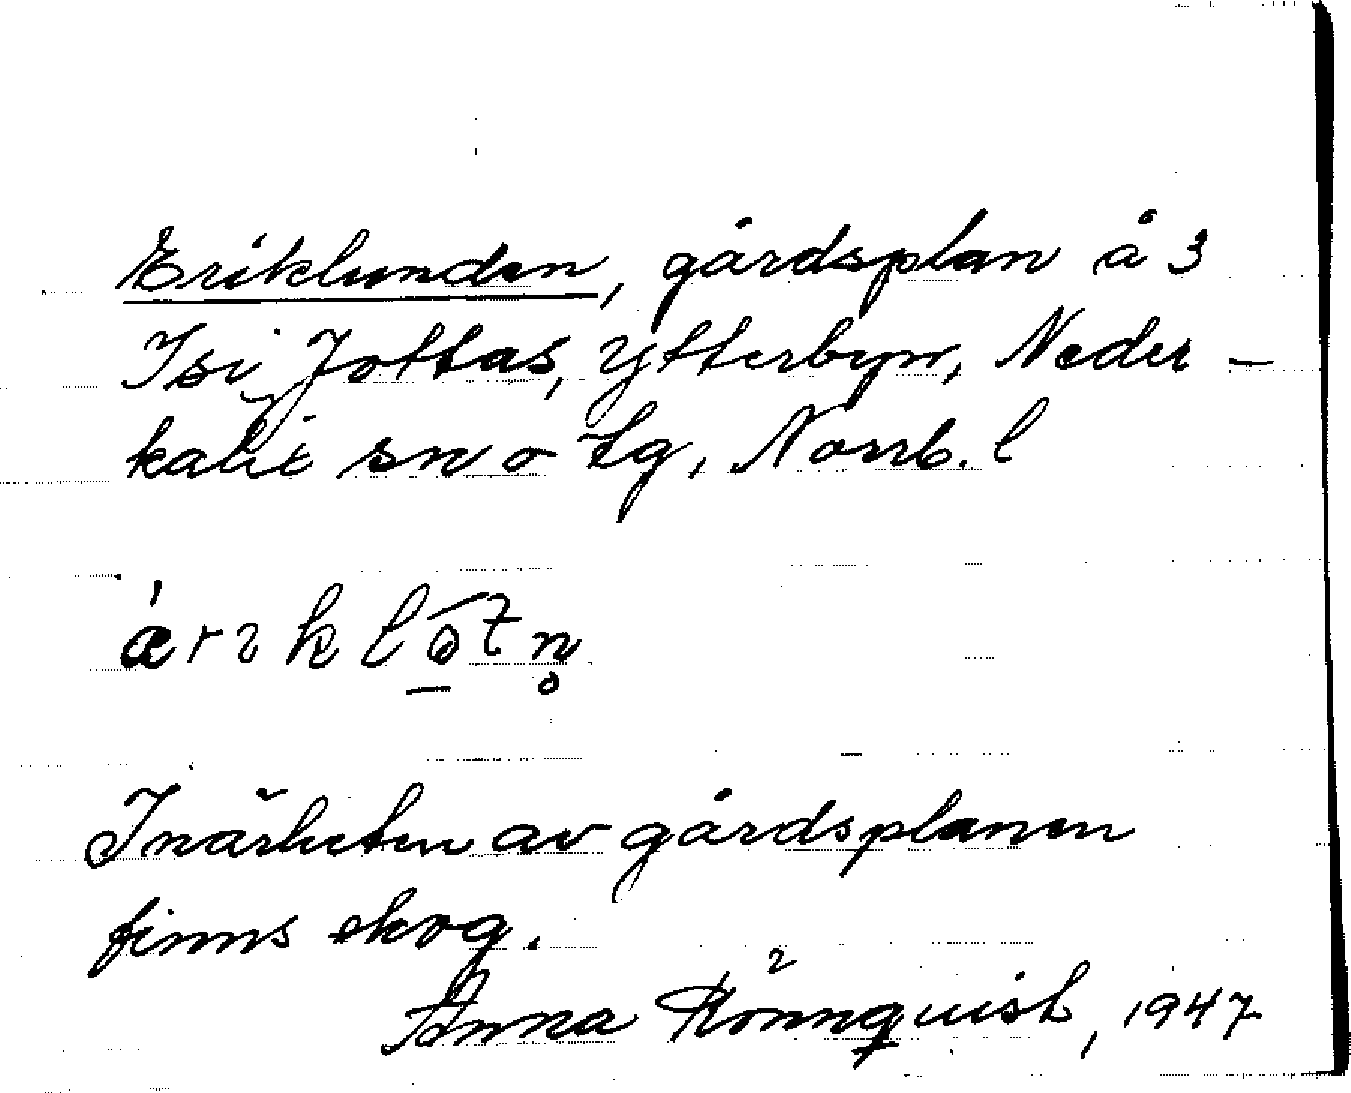 Eriklunden, gårdsplan å 3
Isi Jottas, Ytterbyn, Neder-
kalix sn o tg, Norrb. l
I närheten av gårdsplanen
finns skog.
Anna Rönnquist, 1947